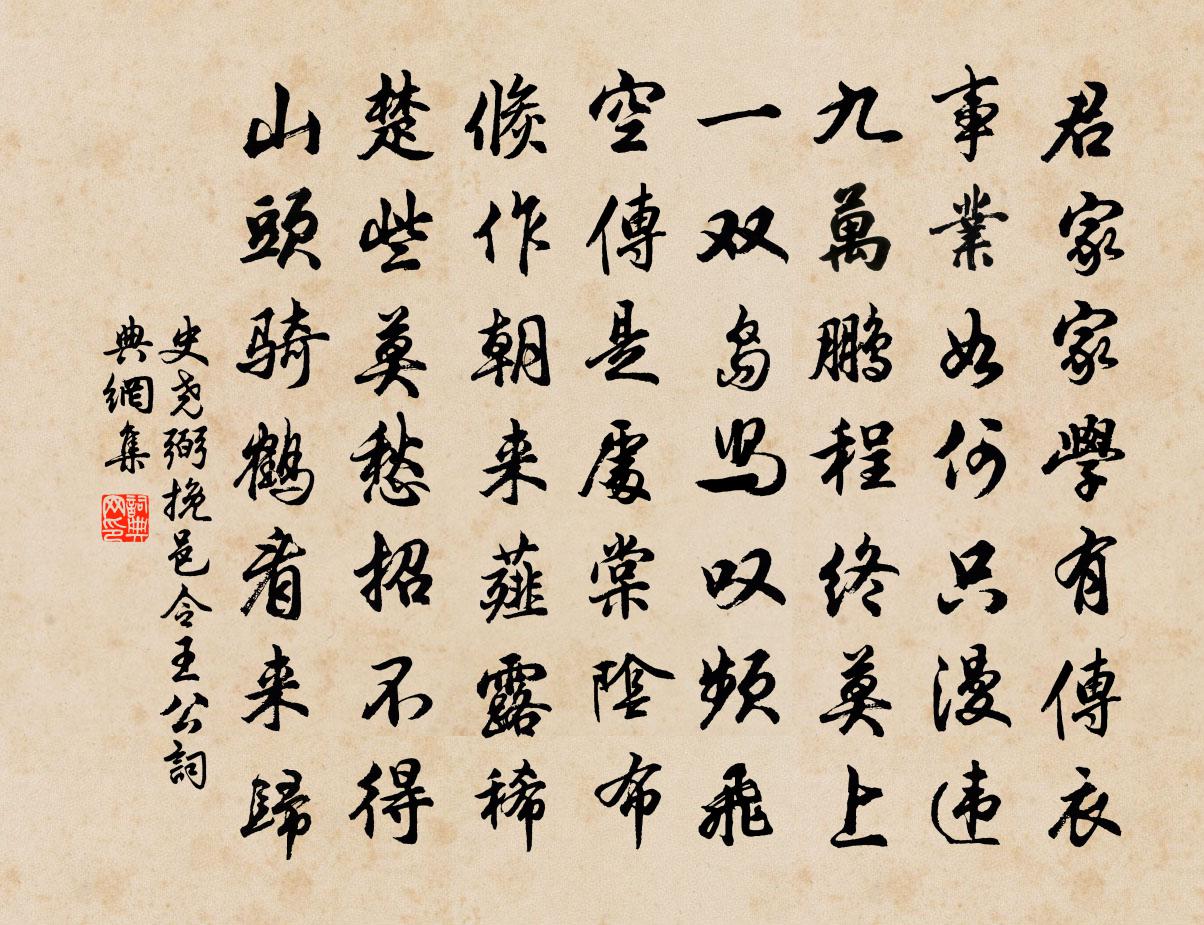 君家家學有傳衣
事業如何只漫违
九萬鵬程終莫上
一双凫舄叹頻飛
空傳是處棠陰布
倐作朝来薤露稀
楚些莫愁招不得
山頭骑鶴看来歸
史尧弼挽邑令王公詞
典網集
詞典
网印